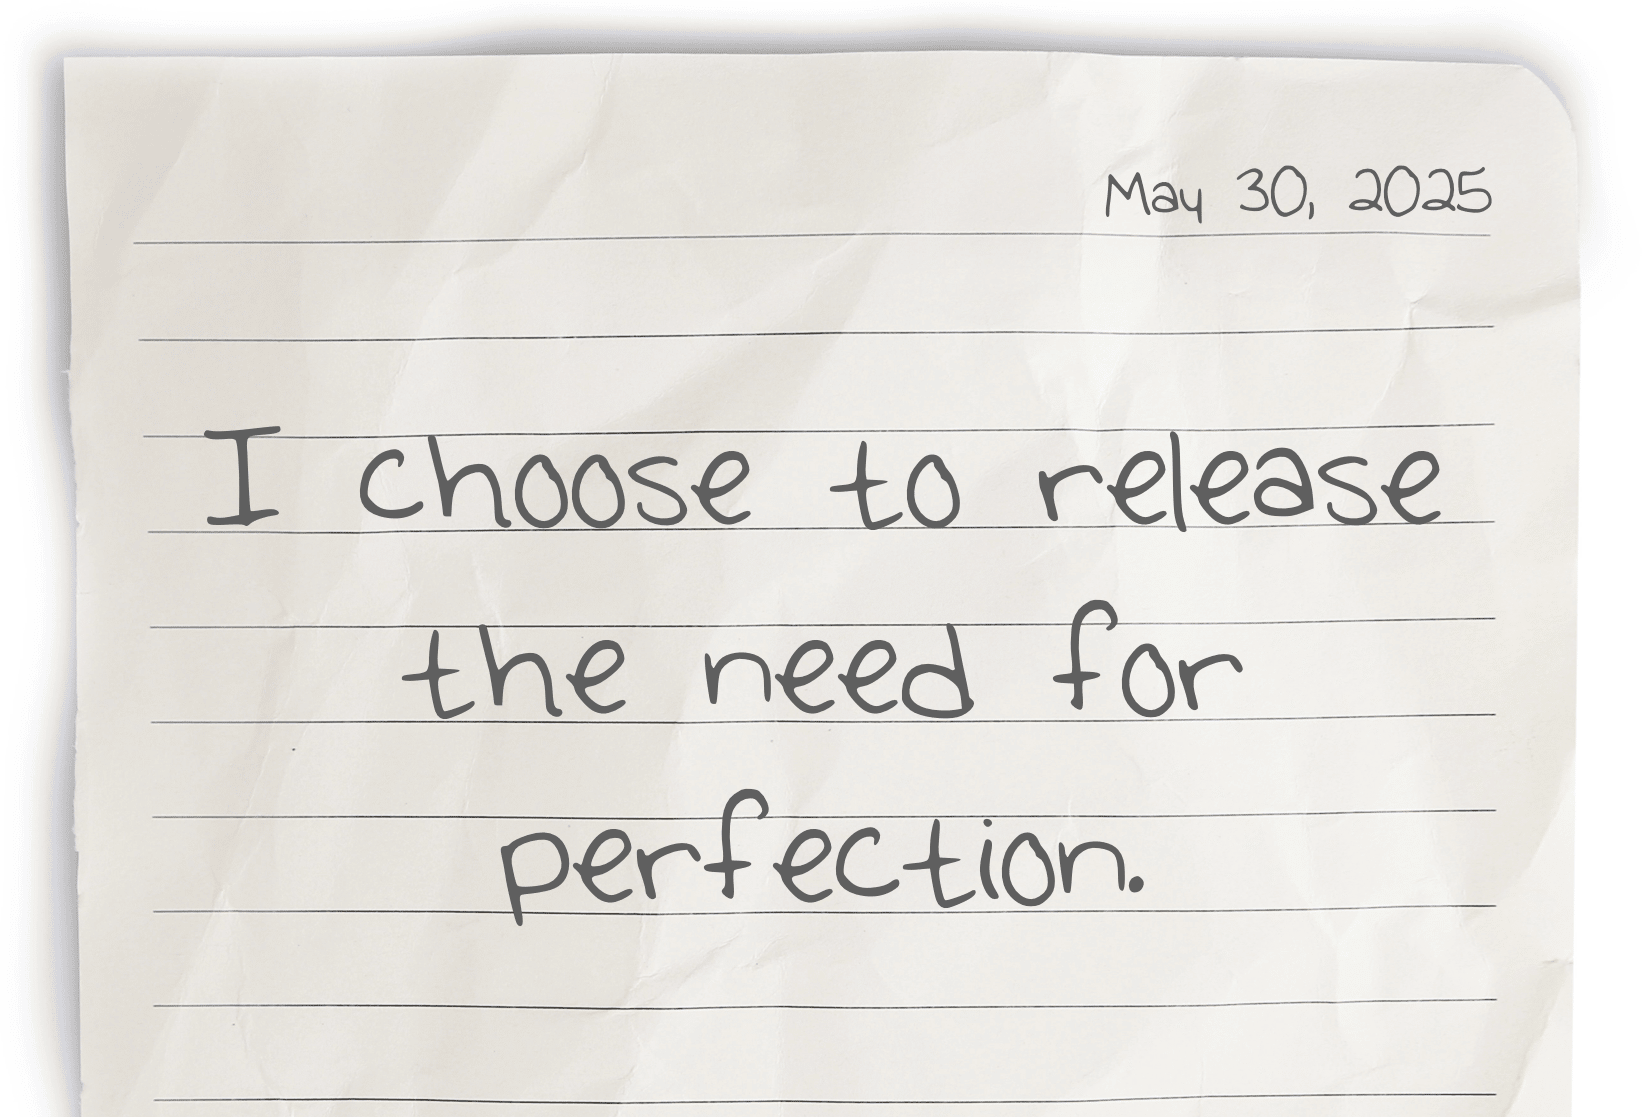 May 30, 2025
I choose to release
the need for
perfection.